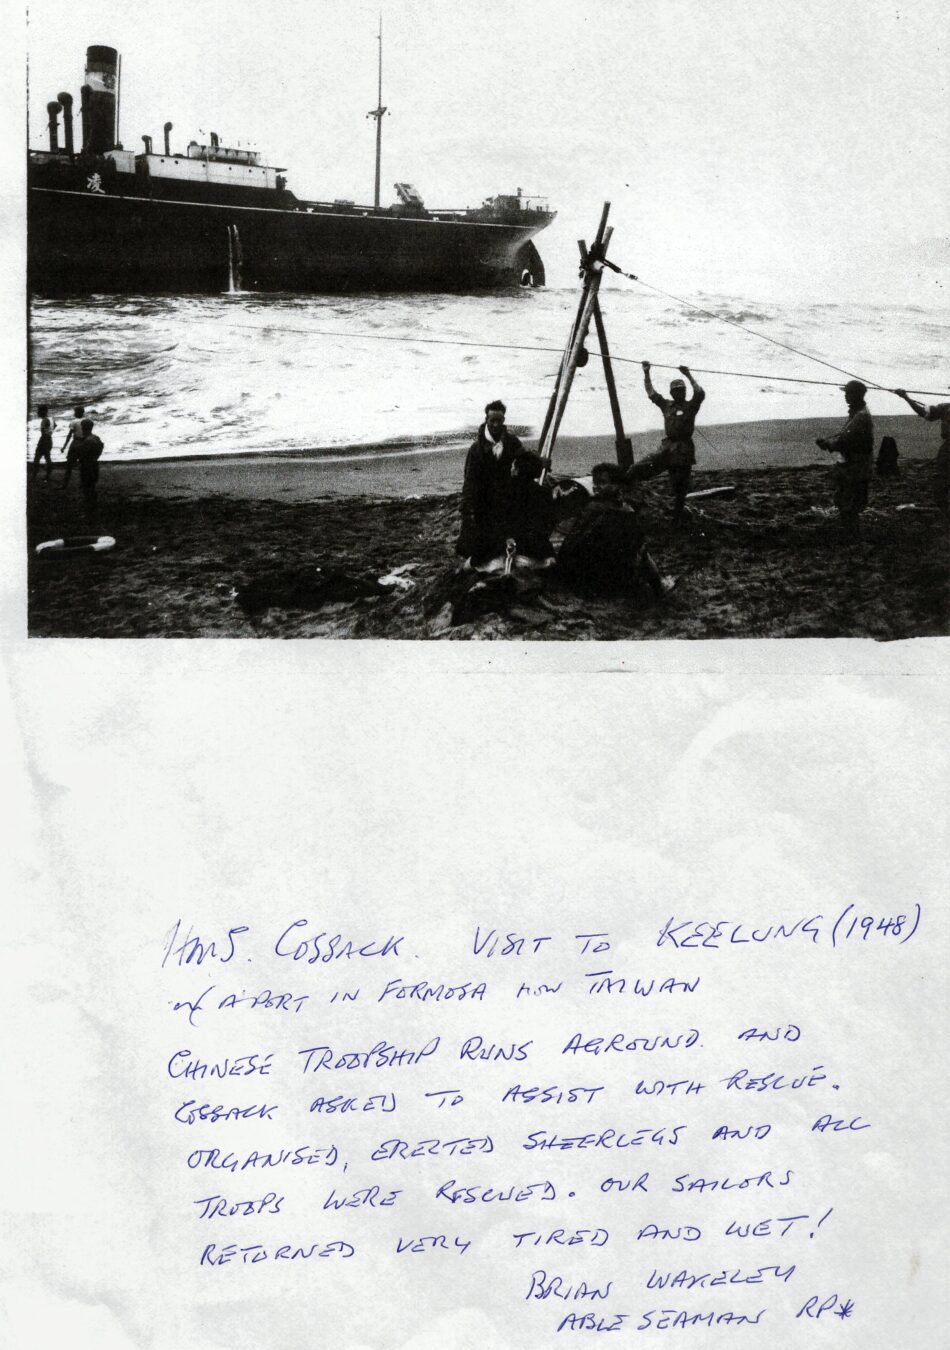 凌
HMS. COSSACK. VISIT TO KEELUNG (1948)
A PORT IN FORMOSA NOW TAIWAN
CHINESE TROOPSHIP RUNS AGROUND. AND
COSSACK ASKED TO ASSIST WITH RESCUE.
ORGANISED, ERECTED SHEERLEGS AND ALL
TROOPS WERE RESCUED. OUR SAILORS
RETURNED VERY TIRED AND WET!
BRIAN WAKELEY
ABLE SEAMAN RP*